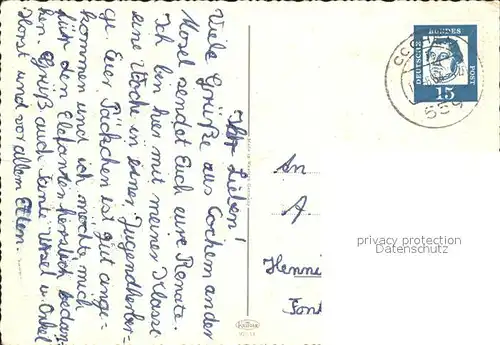 Ihr Lieben!
Viele Grüße aus Cochem an der
Mosel sendet Euch eure Renate.
Ich bin hier mit meiner Klasse
eine Woche in einer Jugendherber-
ge. Euer Päckchen ist gut ange-
kommen und ich möchte mich
für den Elefanten herzlich bedan-
ken. Grüß auch Tante Ursel u. Onkel
Horst und vor allem Ellen.
DEUTSCHE BUNDES POST
15
An
A
Henni
Font
privacy protection
Datenschutz